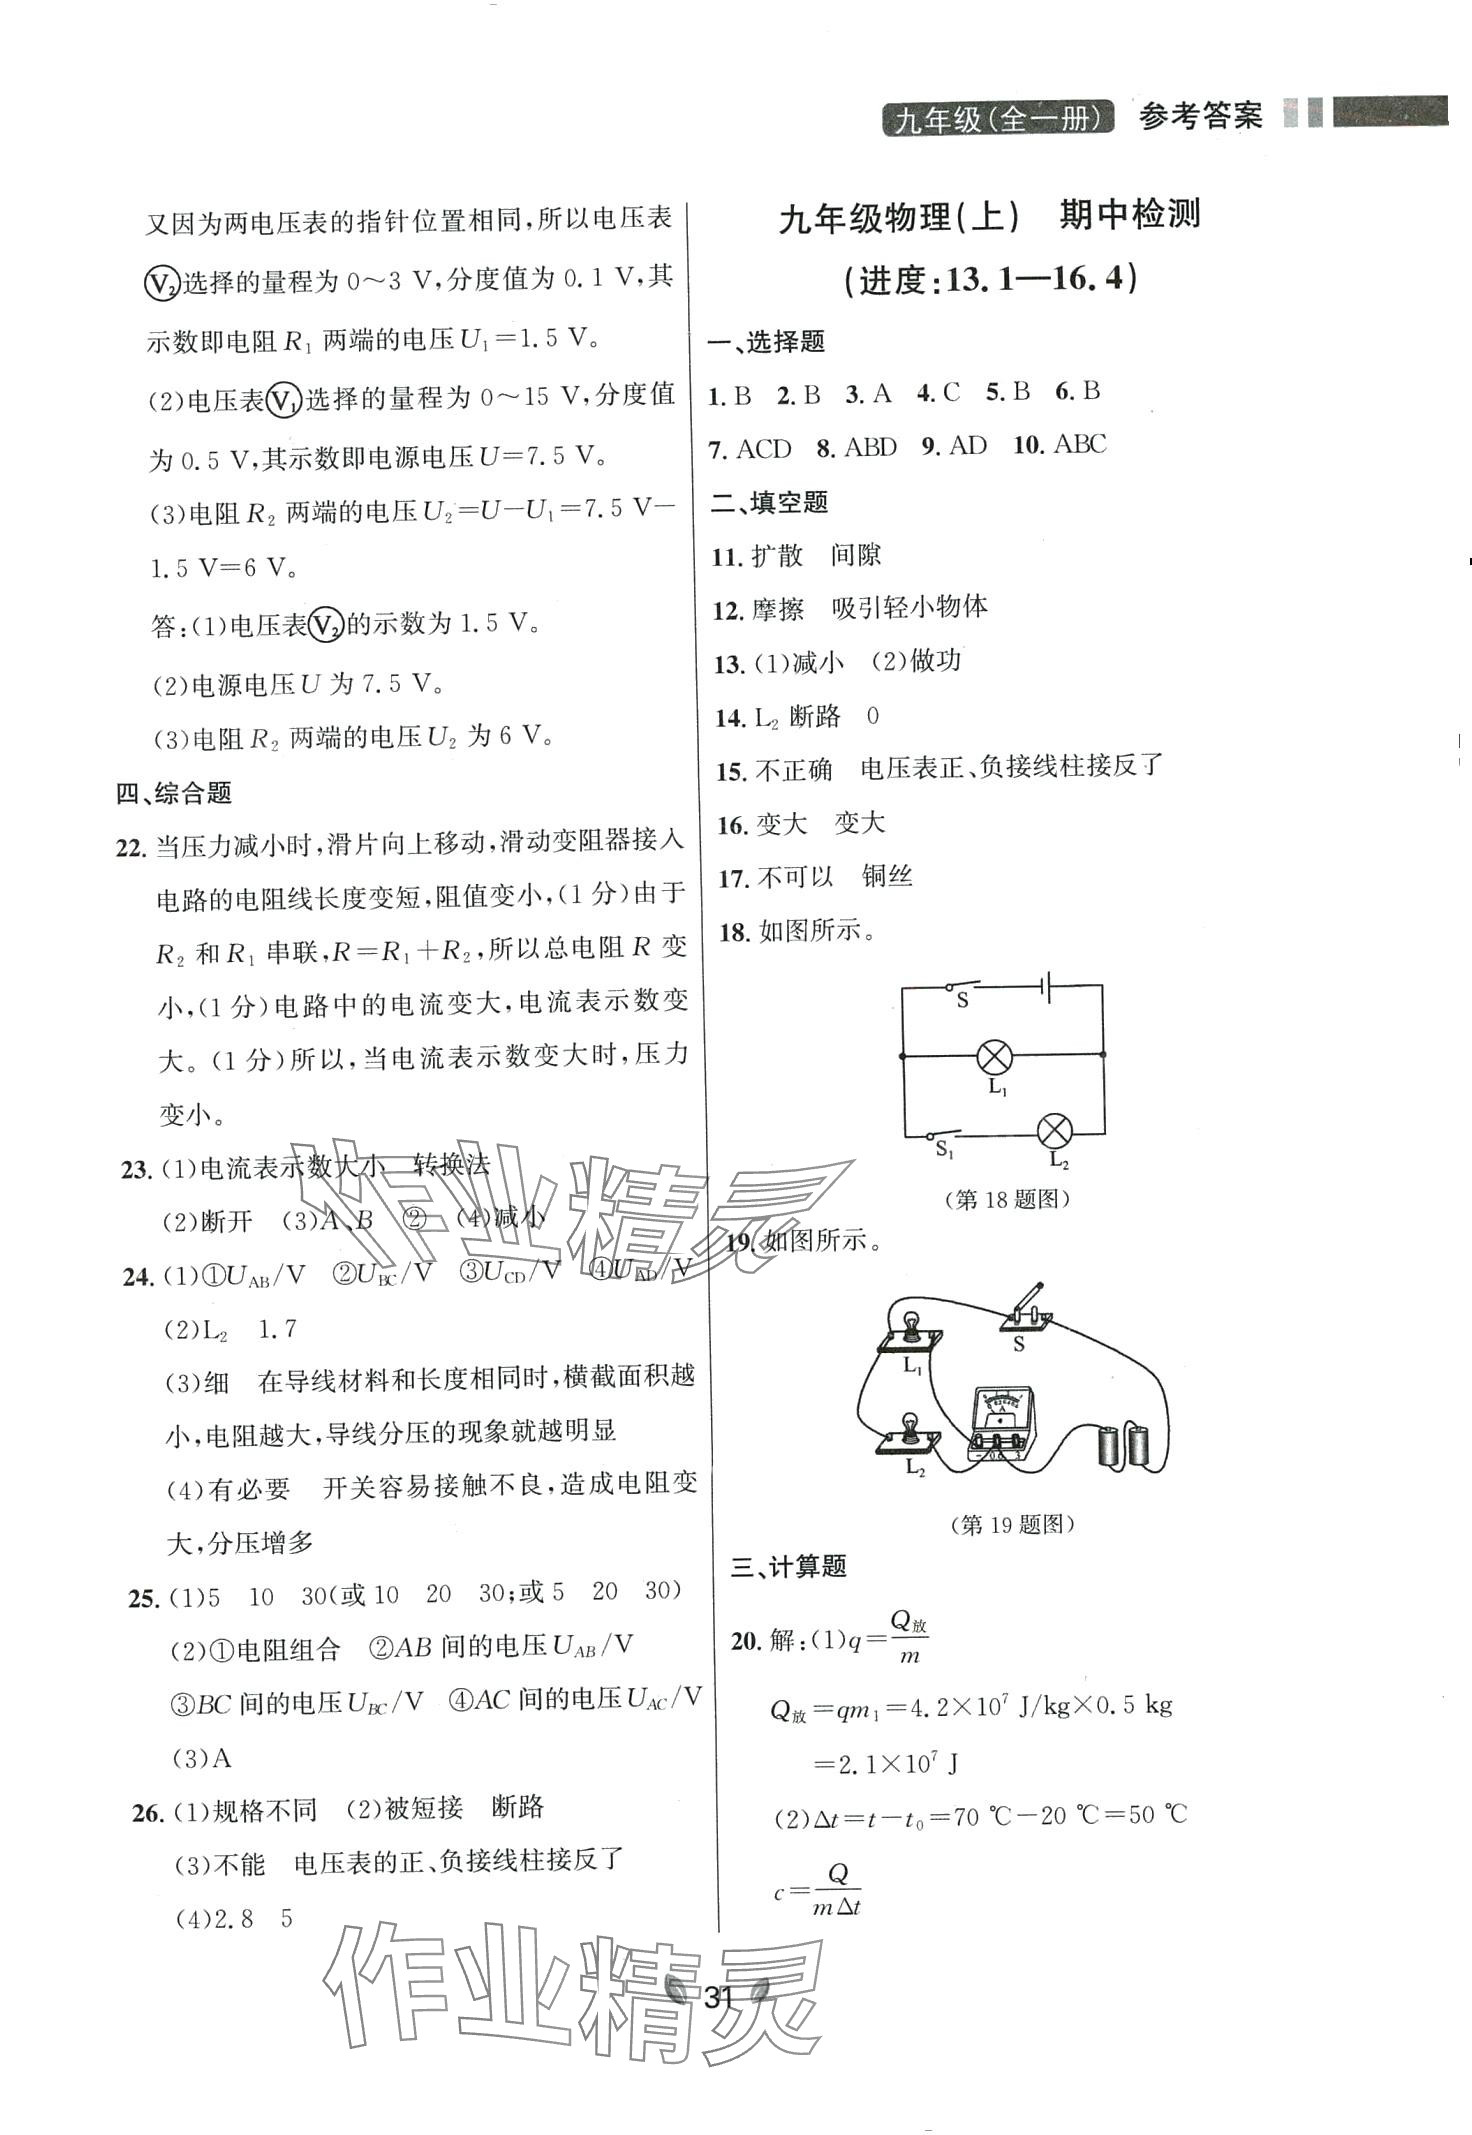 九年级(全一册) 参考答案
又因为两电压表的指针位置相同,所以电压表
V₂选择的量程为 0～3 V,分度值为 0.1 V,其
示数即电阻 R₁ 两端的电压 U₁=1.5 V。
(2)电压表V₁选择的量程为 0～15 V,分度值
为 0.5 V,其示数即电源电压 U=7.5 V。
(3)电阻 R₂ 两端的电压 U₂=U−U₁=7.5 V−
1.5 V=6 V。
答:(1)电压表V₂的示数为 1.5 V。
(2)电源电压 U 为 7.5 V。
(3)电阻 R₂ 两端的电压 U₂ 为 6 V。
四、综合题
22. 当压力减小时,滑片向上移动,滑动变阻器接入
电路的电阻线长度变短,阻值变小,(1 分)由于
R₂ 和 R₁ 串联,R=R₁+R₂,所以总电阻 R 变
小,(1 分)电路中的电流变大,电流表示数变
大。(1 分)所以,当电流表示数变大时,压力
变小。
23. (1)电流表示数大小 转换法
(2)断开 (3)A、B ② (4)减小
24. (1)①U_AB/V ②U_BC/V ③U_CD/V ④U_AD/V
(2)L₂ 1.7
(3)细 在导线材料和长度相同时,横截面积越
小,电阻越大,导线分压的现象就越明显
(4)有必要 开关容易接触不良,造成电阻变
大,分压增多
25. (1)5 10 30(或 10 20 30;或 5 20 30)
(2)①电阻组合 ②AB 间的电压 U_AB/V
③BC 间的电压 U_BC/V ④AC 间的电压 U_AC/V
(3)A
26. (1)规格不同 (2)被短接 断路
(3)不能 电压表的正、负接线柱接反了
(4)2.8 5
九年级物理(上) 期中检测
(进度:13.1—16.4)
一、选择题
1. B 2. B 3. A 4. C 5. B 6. B
7. ACD 8. ABD 9. AD 10. ABC
二、填空题
11. 扩散 间隙
12. 摩擦 吸引轻小物体
13. (1)减小 (2)做功
14. L₂ 断路 0
15. 不正确 电压表正、负接线柱接反了
16. 变大 变大
17. 不可以 铜丝
18. 如图所示。
S
L₁
S₁ L₂
(第 18 题图)
19. 如图所示。
S
L₁
A
L₂
− 0.6 3
(第 19 题图)
三、计算题
20. 解:(1)q=Q放/m
Q放=qm₁=4.2×10⁷ J/kg×0.5 kg
=2.1×10⁷ J
(2)Δt=t−t₀=70 ℃−20 ℃=50 ℃
c=Q/mΔt
31
作业精灵
作业精灵